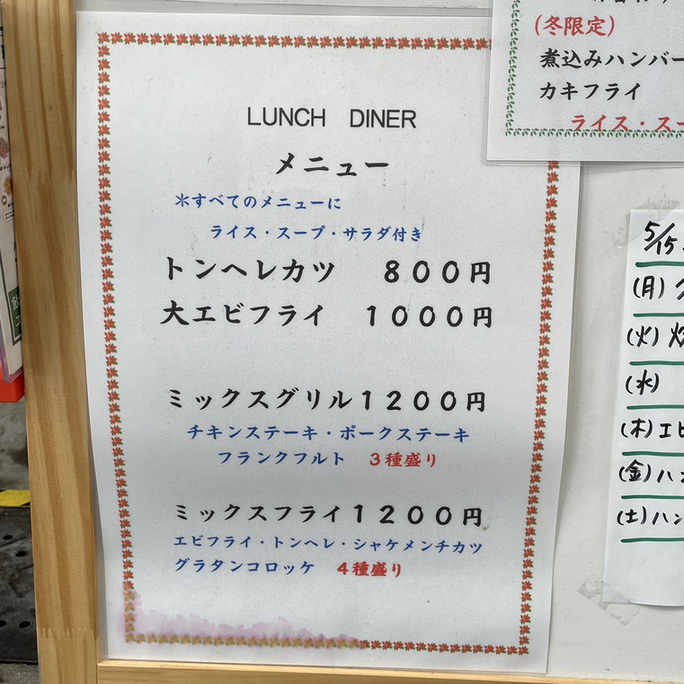 LUNCH DINER
メニュー
＊すべてのメニューに
ライス・スープ・サラダ付き
トンヘレカツ ８００円
大エビフライ １０００円
ミックスグリル１２００円
チキンステーキ・ポークステーキ
フランクフルト ３種盛り
ミックスフライ１２００円
エビフライ・トンヘレ・シャケメンチカツ
グラタンコロッケ ４種盛り
(冬限定)
煮込みハンバー
カキフライ
ライス・スー
5/15
(月)
(火)
(水)
(木)エビ
(金)ハン
(土)ハン